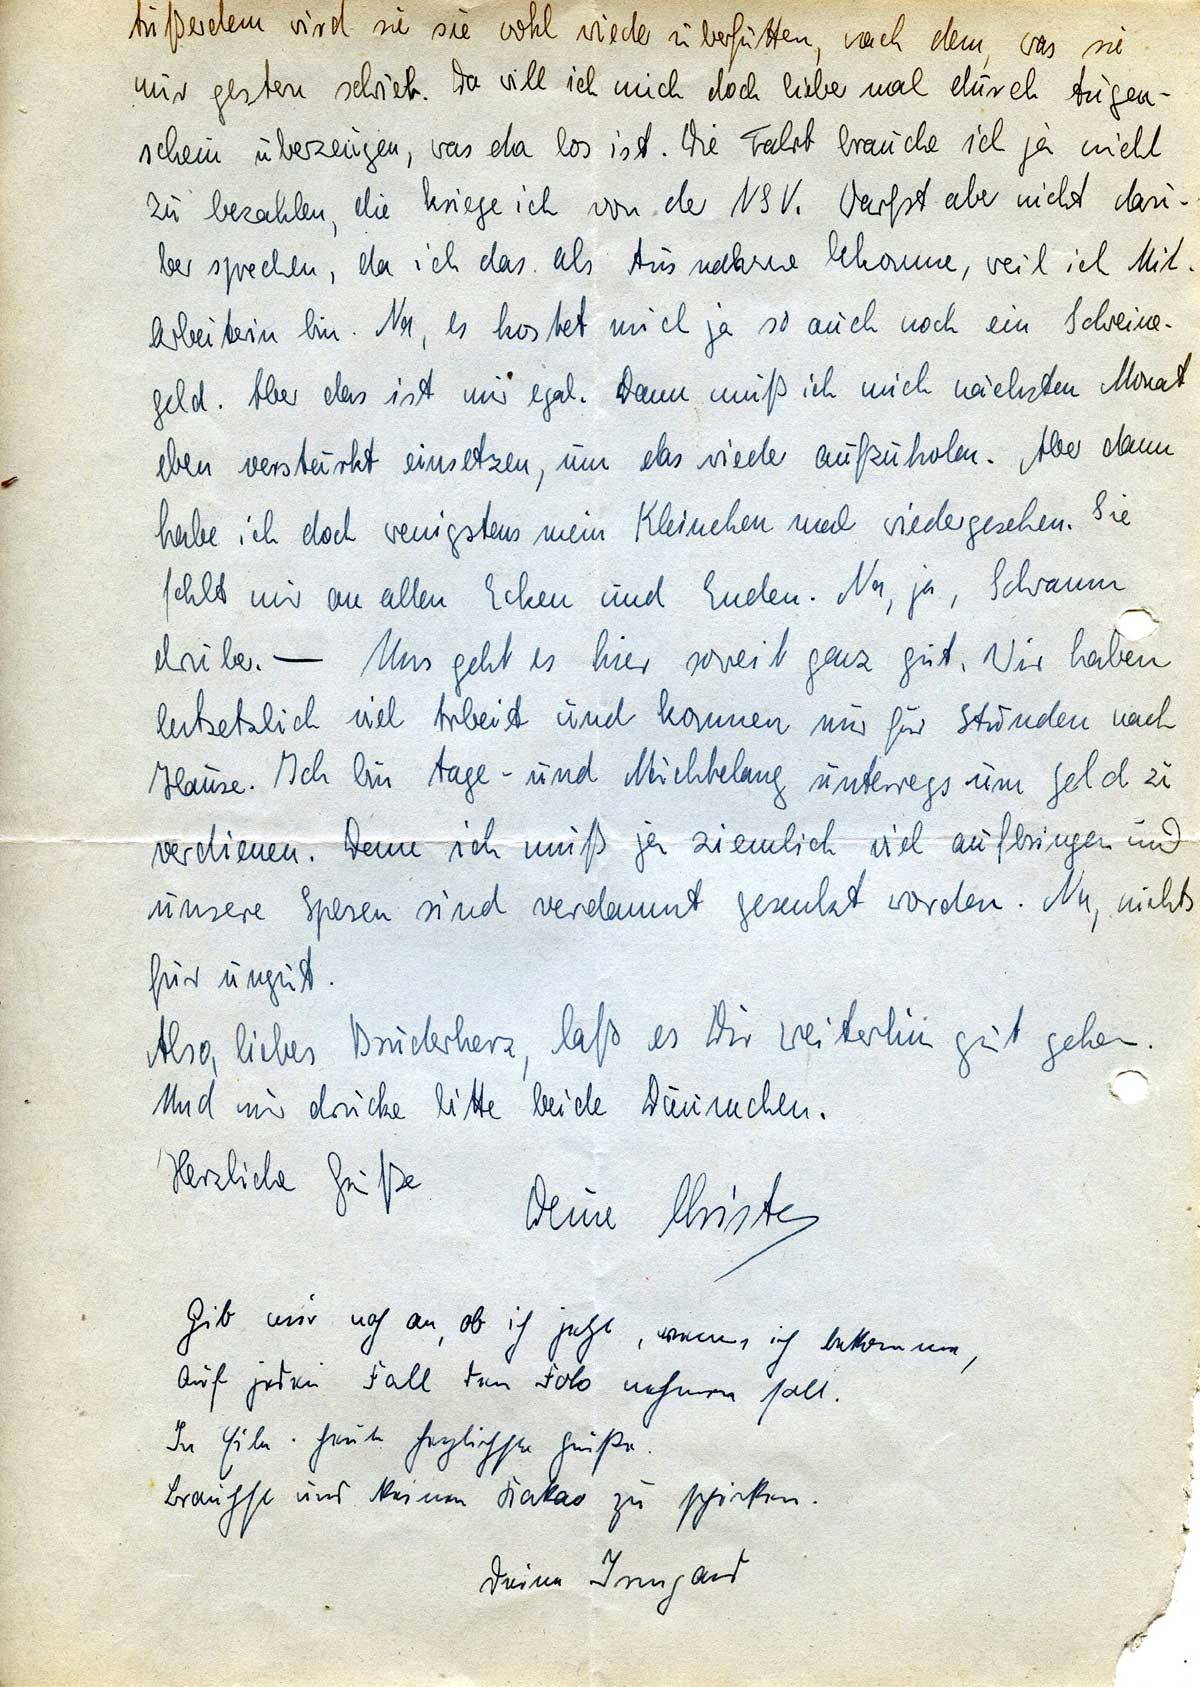 Außerdem wird sie sie wohl wieder überfüttern, nach dem, was sie
mir gestern schrieb. Da will ich mich doch lieber mal durch Augen-
schein überzeugen, was da los ist. Die Fahrt brauche ich ja nicht
zu bezahlen, die kriege ich von der NSV. Darfst aber nicht darü-
ber sprechen, da ich das als Ausnahme bekomme, weil ich Mit-
arbeiterin bin. Na, es kostet mich ja so auch noch ein Schweine-
geld. Aber das ist mir egal. Dann muß ich mich nächsten Monat
eben verstärkt einsetzen, um das wieder aufzuholen. Aber dann
habe ich doch wenigstens mein Kleinchen mal wiedergesehen. Sie
fehlt mir an allen Ecken und Enden. Na, ja, Schwamm
drüber. — Uns geht es hier soweit ganz gut. Wir haben
entsetzlich viel Arbeit und kommen nur für Stunden nach
Hause. Ich bin tage- und unterwegs um Geld zu
verdienen. Denn ich muß ja ziemlich viel aufbringen und
unsere Spesen sind verdammt gesenkt worden. Na, nichts
für ungut.
Also, liebes Bruderherz, laß es Dir weiterhin gut gehen.
Und mir drücke bitte beide Däumchen.
Herzliche Grüße
Deine Christe
Gib mir noch an, ob ich jetzt, wenns ich bekomme,
auf jeden Fall den Foto nehmen soll.
In Eile. heute herzlichste Grüße.
Brauchst uns keinen Kakao zu schicken.
Deine Irmgard